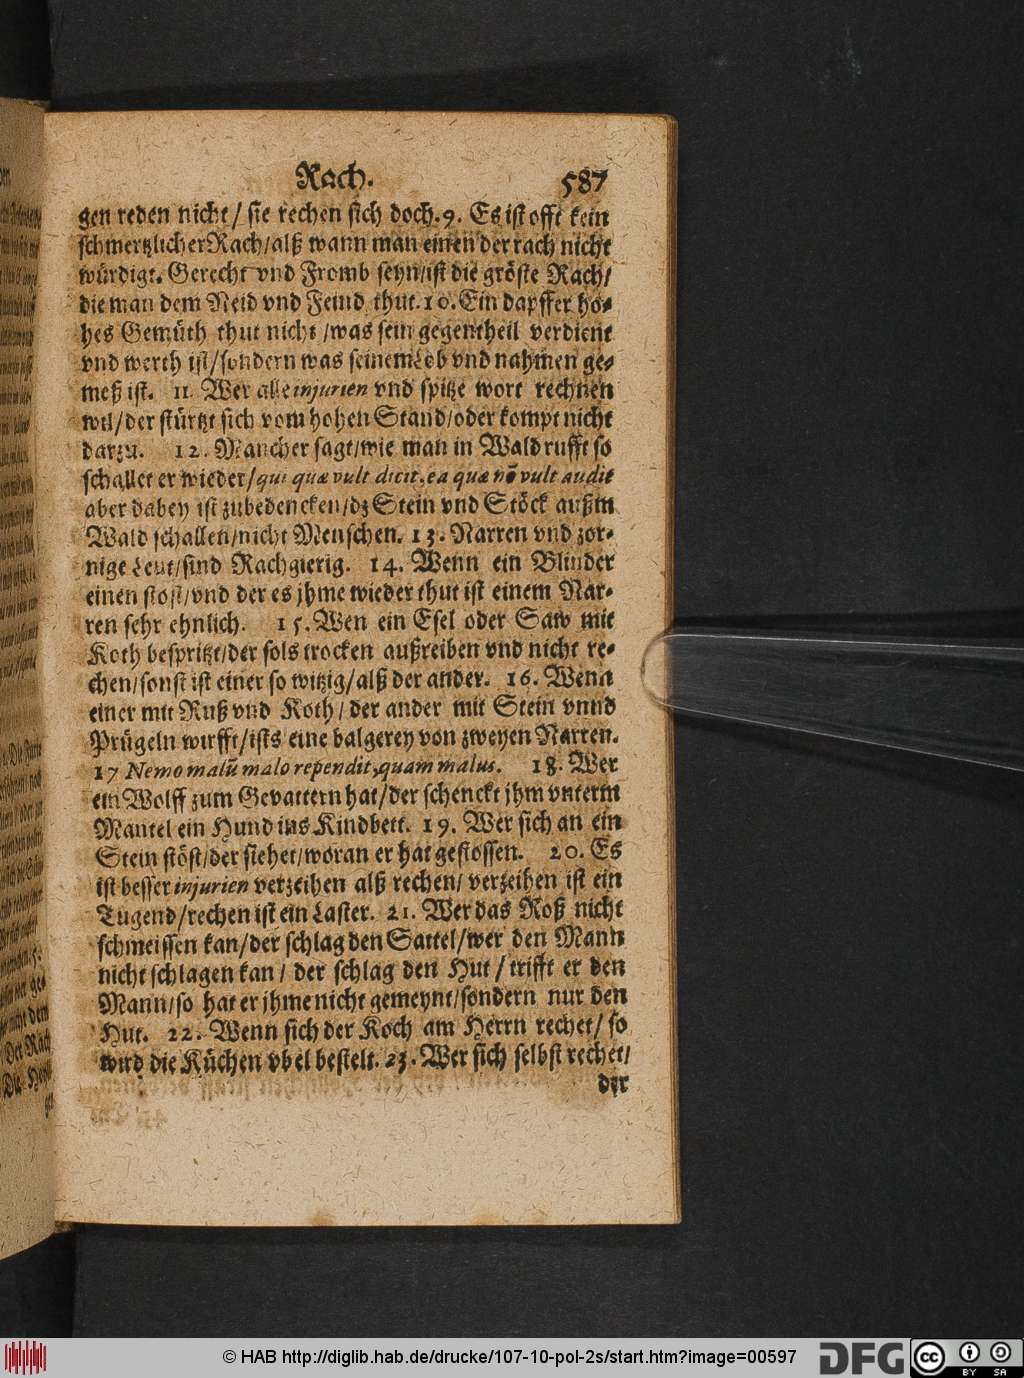 Rach. 587
gen reden nicht/ sie rechen sich doch. 9. Es ist offt kein
schmertzlicher Rach/ alß wann man einen der rach nicht
würdigt. Gerecht vnd Fromb seyn/ ist die gröste Rach/
die man dem Neid vnd Feind thut. 10. Ein dapffer ho-
hes Gemüth thut nicht/ was sein gegentheil verdient
vnd werth ist/ sondern was seinem Lob vnd nahmen ge-
meß ist. 11. Wer alle injurien vnd spitze wort rechnen
wil/ der stürtzt sich vom hohen Stand/ oder kompt nicht
darzu. 12. Mancher sagt/ wie man in Wald rufft so
schallet er wieder/ qui quæ vult dicit, ea quæ nõ vult audit
aber dabey ist zubedencken/ dz Stein vnd Stöck außm
Wald schallen/ nicht Menschen. 13. Narren vnd zor-
nige Leut/ sind Rachgierig. 14. Wenn ein Blinder
einen stost/ vnd der es jhme wieder thut ist einem Nar-
ren sehr ehnlich. 15. Wen ein Esel oder Saw mit
Koth bespritzt/ der sols trocken außreiben vnd nicht re-
chen/ sonst ist einer so witzig/ alß der ander. 16. Wenn
einer mit Ruß vnd Koth/ der ander mit Stein vnnd
Prügeln wirfft/ ists eine balgerey von zweyen Narren.
17 Nemo malũ malo rependit, quam malus. 18. Wer
ein Wolff zum Gevattern hat/ der schenckt jhm vnterm
Mantel ein Hund ins Kindbett. 19. Wer sich an ein
Stein stöst/ der siehet/ woran er hat gestossen. 20. Es
ist besser injurien verzeihen alß rechen/ verzeihen ist ein
Tugend/ rechen ist ein Laster. 21. Wer das Roß nicht
schmeissen kan/ der schlag den Sattel/ wer den Mann
nicht schlagen kan/ der schlag den Hut/ trifft er den
Mann/ so hat er jhme nicht gemeynt/ sondern nur den
Hut. 22. Wenn sich der Koch am Herrn rechet/ so
wird die Küchen vbel bestelt. 23. Wer sich selbst rechet/
der
© HAB http://diglib.hab.de/drucke/107-10-pol-2s/start.htm?image=00597
DFG
cc BY SA